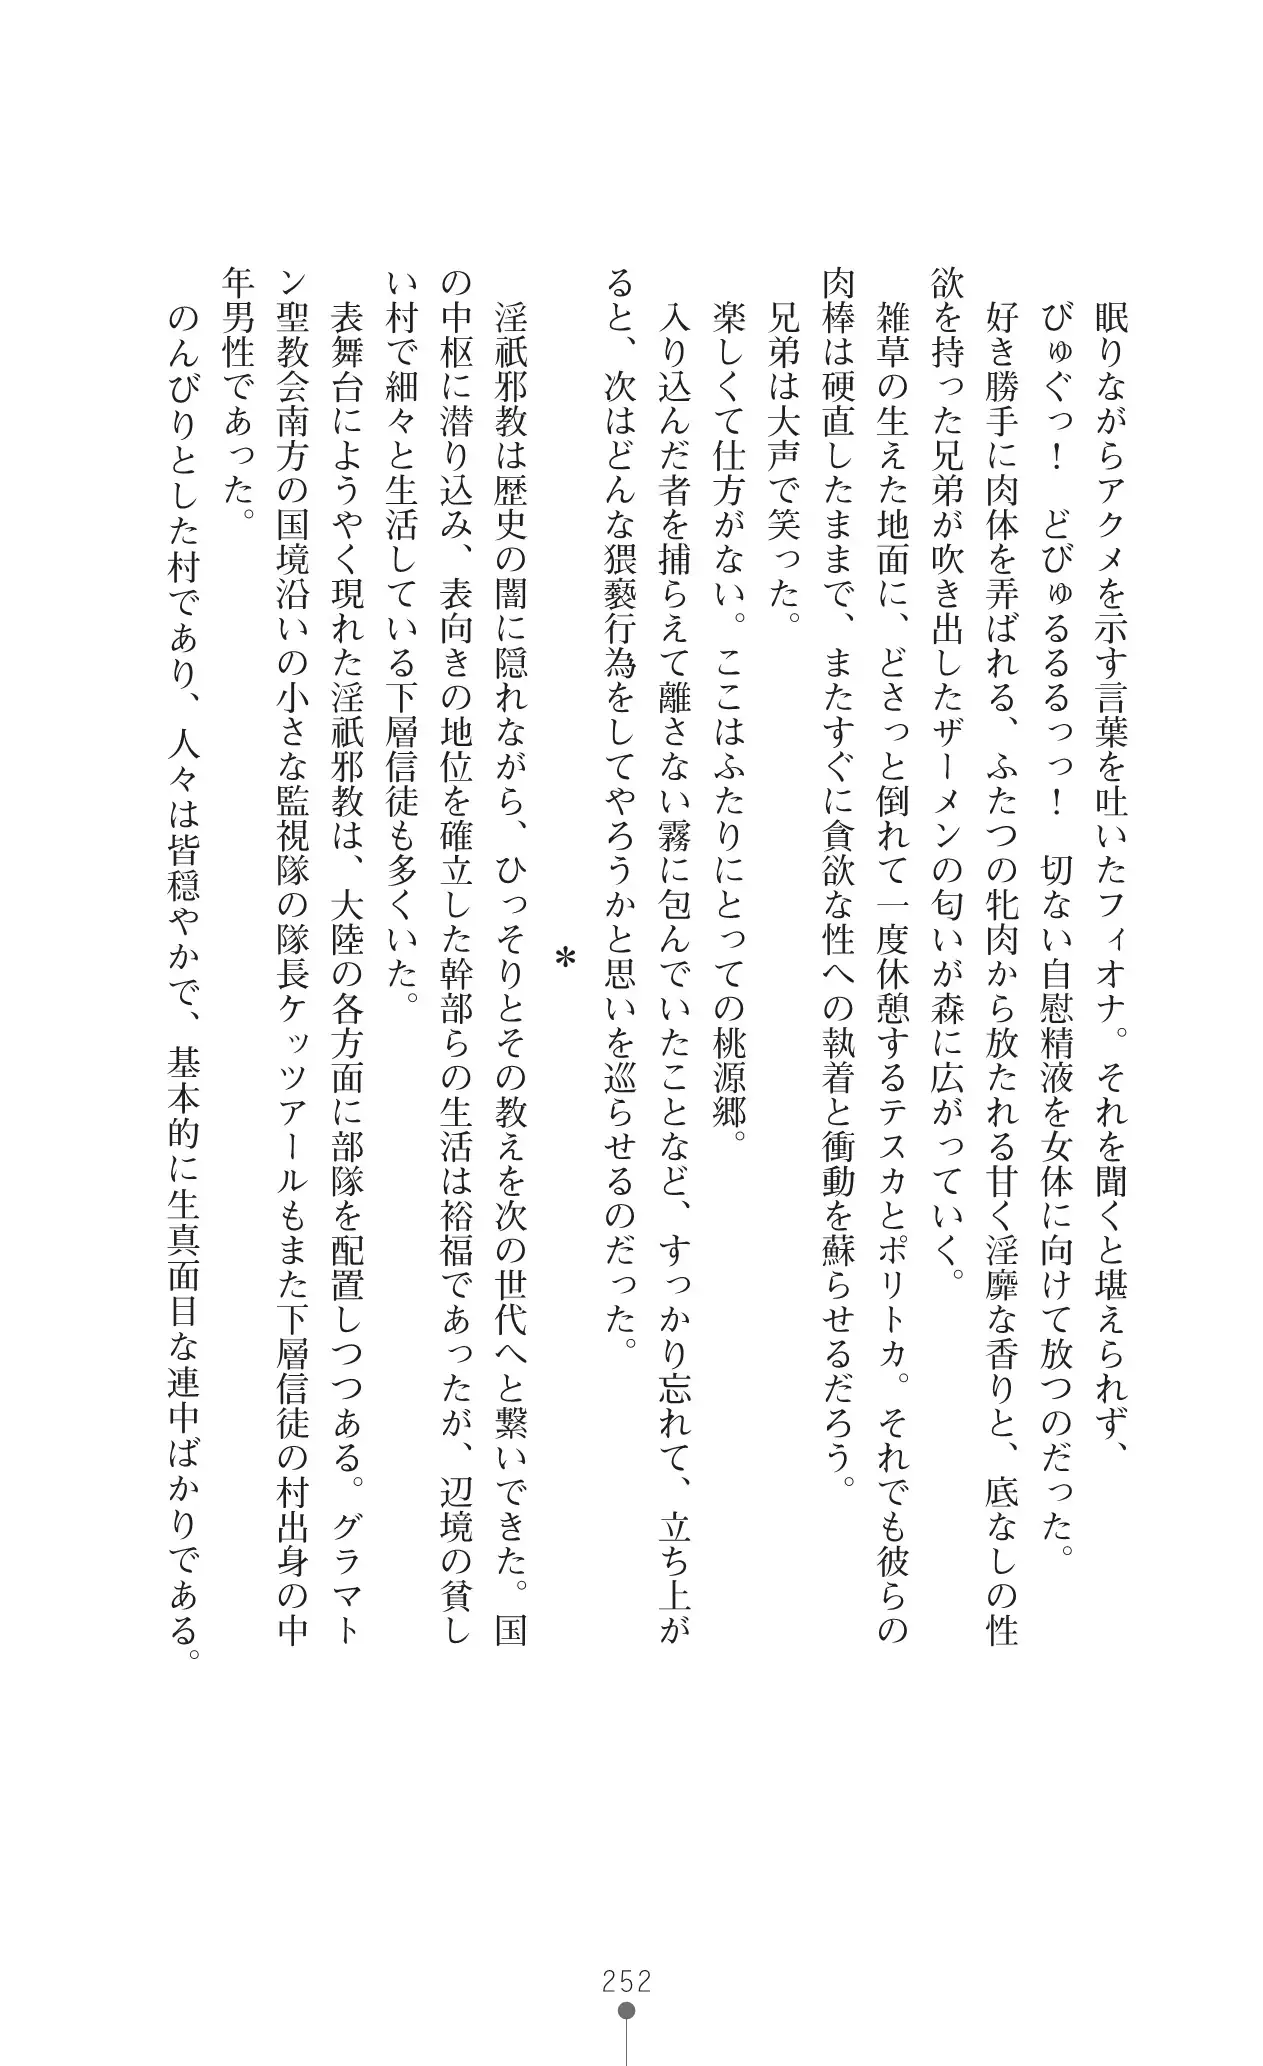 眠りながらアクメを示す言葉を吐いたフィオナ。それを聞くと堪えられず、
びゅぐっ！　どびゅるるるっっ！　切ない自慰精液を女体に向けて放つのだった。
好き勝手に肉体を弄ばれる、ふたつの牝肉から放たれる甘く淫靡な香りと、底なしの性
欲を持った兄弟が吹き出したザーメンの匂いが森に広がっていく。
雑草の生えた地面に、どさっと倒れて一度休憩するテスカとポリトカ。それでも彼らの
肉棒は硬直したままで、またすぐに貪欲な性への執着と衝動を蘇らせるだろう。
兄弟は大声で笑った。
楽しくて仕方がない。ここはふたりにとっての桃源郷。
入り込んだ者を捕らえて離さない霧に包んでいたことなど、すっかり忘れて、立ち上が
ると、次はどんな猥褻行為をしてやろうかと思いを巡らせるのだった。
＊
淫祇邪教は歴史の闇に隠れながら、ひっそりとその教えを次の世代へと繋いできた。国
の中枢に潜り込み、表向きの地位を確立した幹部らの生活は裕福であったが、辺境の貧し
い村で細々と生活している下層信徒も多くいた。
表舞台にようやく現れた淫祇邪教は、大陸の各方面に部隊を配置しつつある。グラマト
ン聖教会南方の国境沿いの小さな監視隊の隊長ケッツアールもまた下層信徒の村出身の中
年男性であった。
のんびりとした村であり、人々は皆穏やかで、基本的に生真面目な連中ばかりである。
252